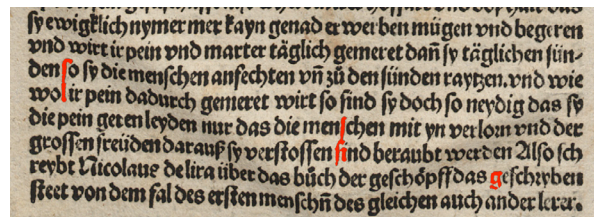 sy ewigklich nymer mer kayn genad erwerben mügen vnd begeren
vnd wirt ir pein vnd marter täglich gemeret dañ sy täglichen sün-
den so sy die menschen anfechten vñ zů den sünden raytzen. vnd wie
wol ir pein dadurch gemeret wirt so sind sy doch so neydig das sy
die pein geren leyden nur das die menschen mit yn verlorn vnd der
grossen freüden darauß sy verstossen sind beraubt werden Also sch
reybt Nicolaus de lira über das bůch der geschöpff das geschryben
steet von dem fal des ersten menschñ des gleichen auch ander lerer.